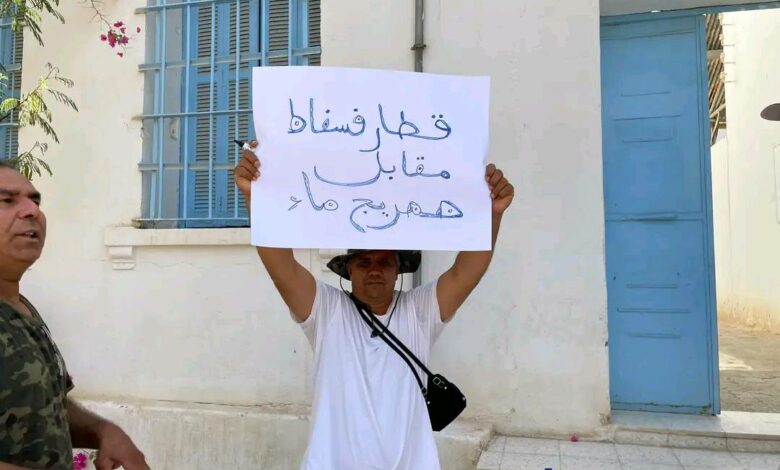 قطار فسفاط
مقابل
صهريج ماء